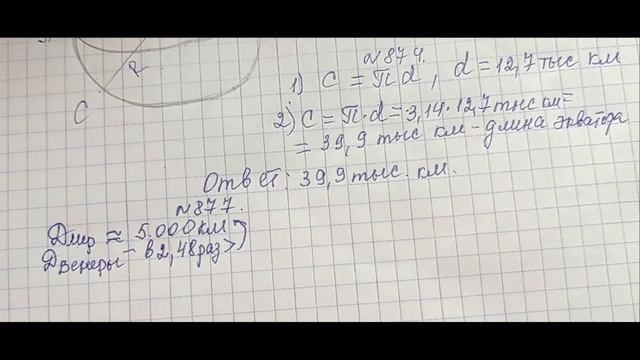 R
C
№874.
1) C = πd, d = 12,7 тыс км
2) C = π·d = 3,14·12,7 тыс км =
= 39,9 тыс км - длина экватора
Ответ: 39,9 тыс. км.
№877.
Dмер ≈ 5.000 км
Dвенеры - в 2,48 раз >